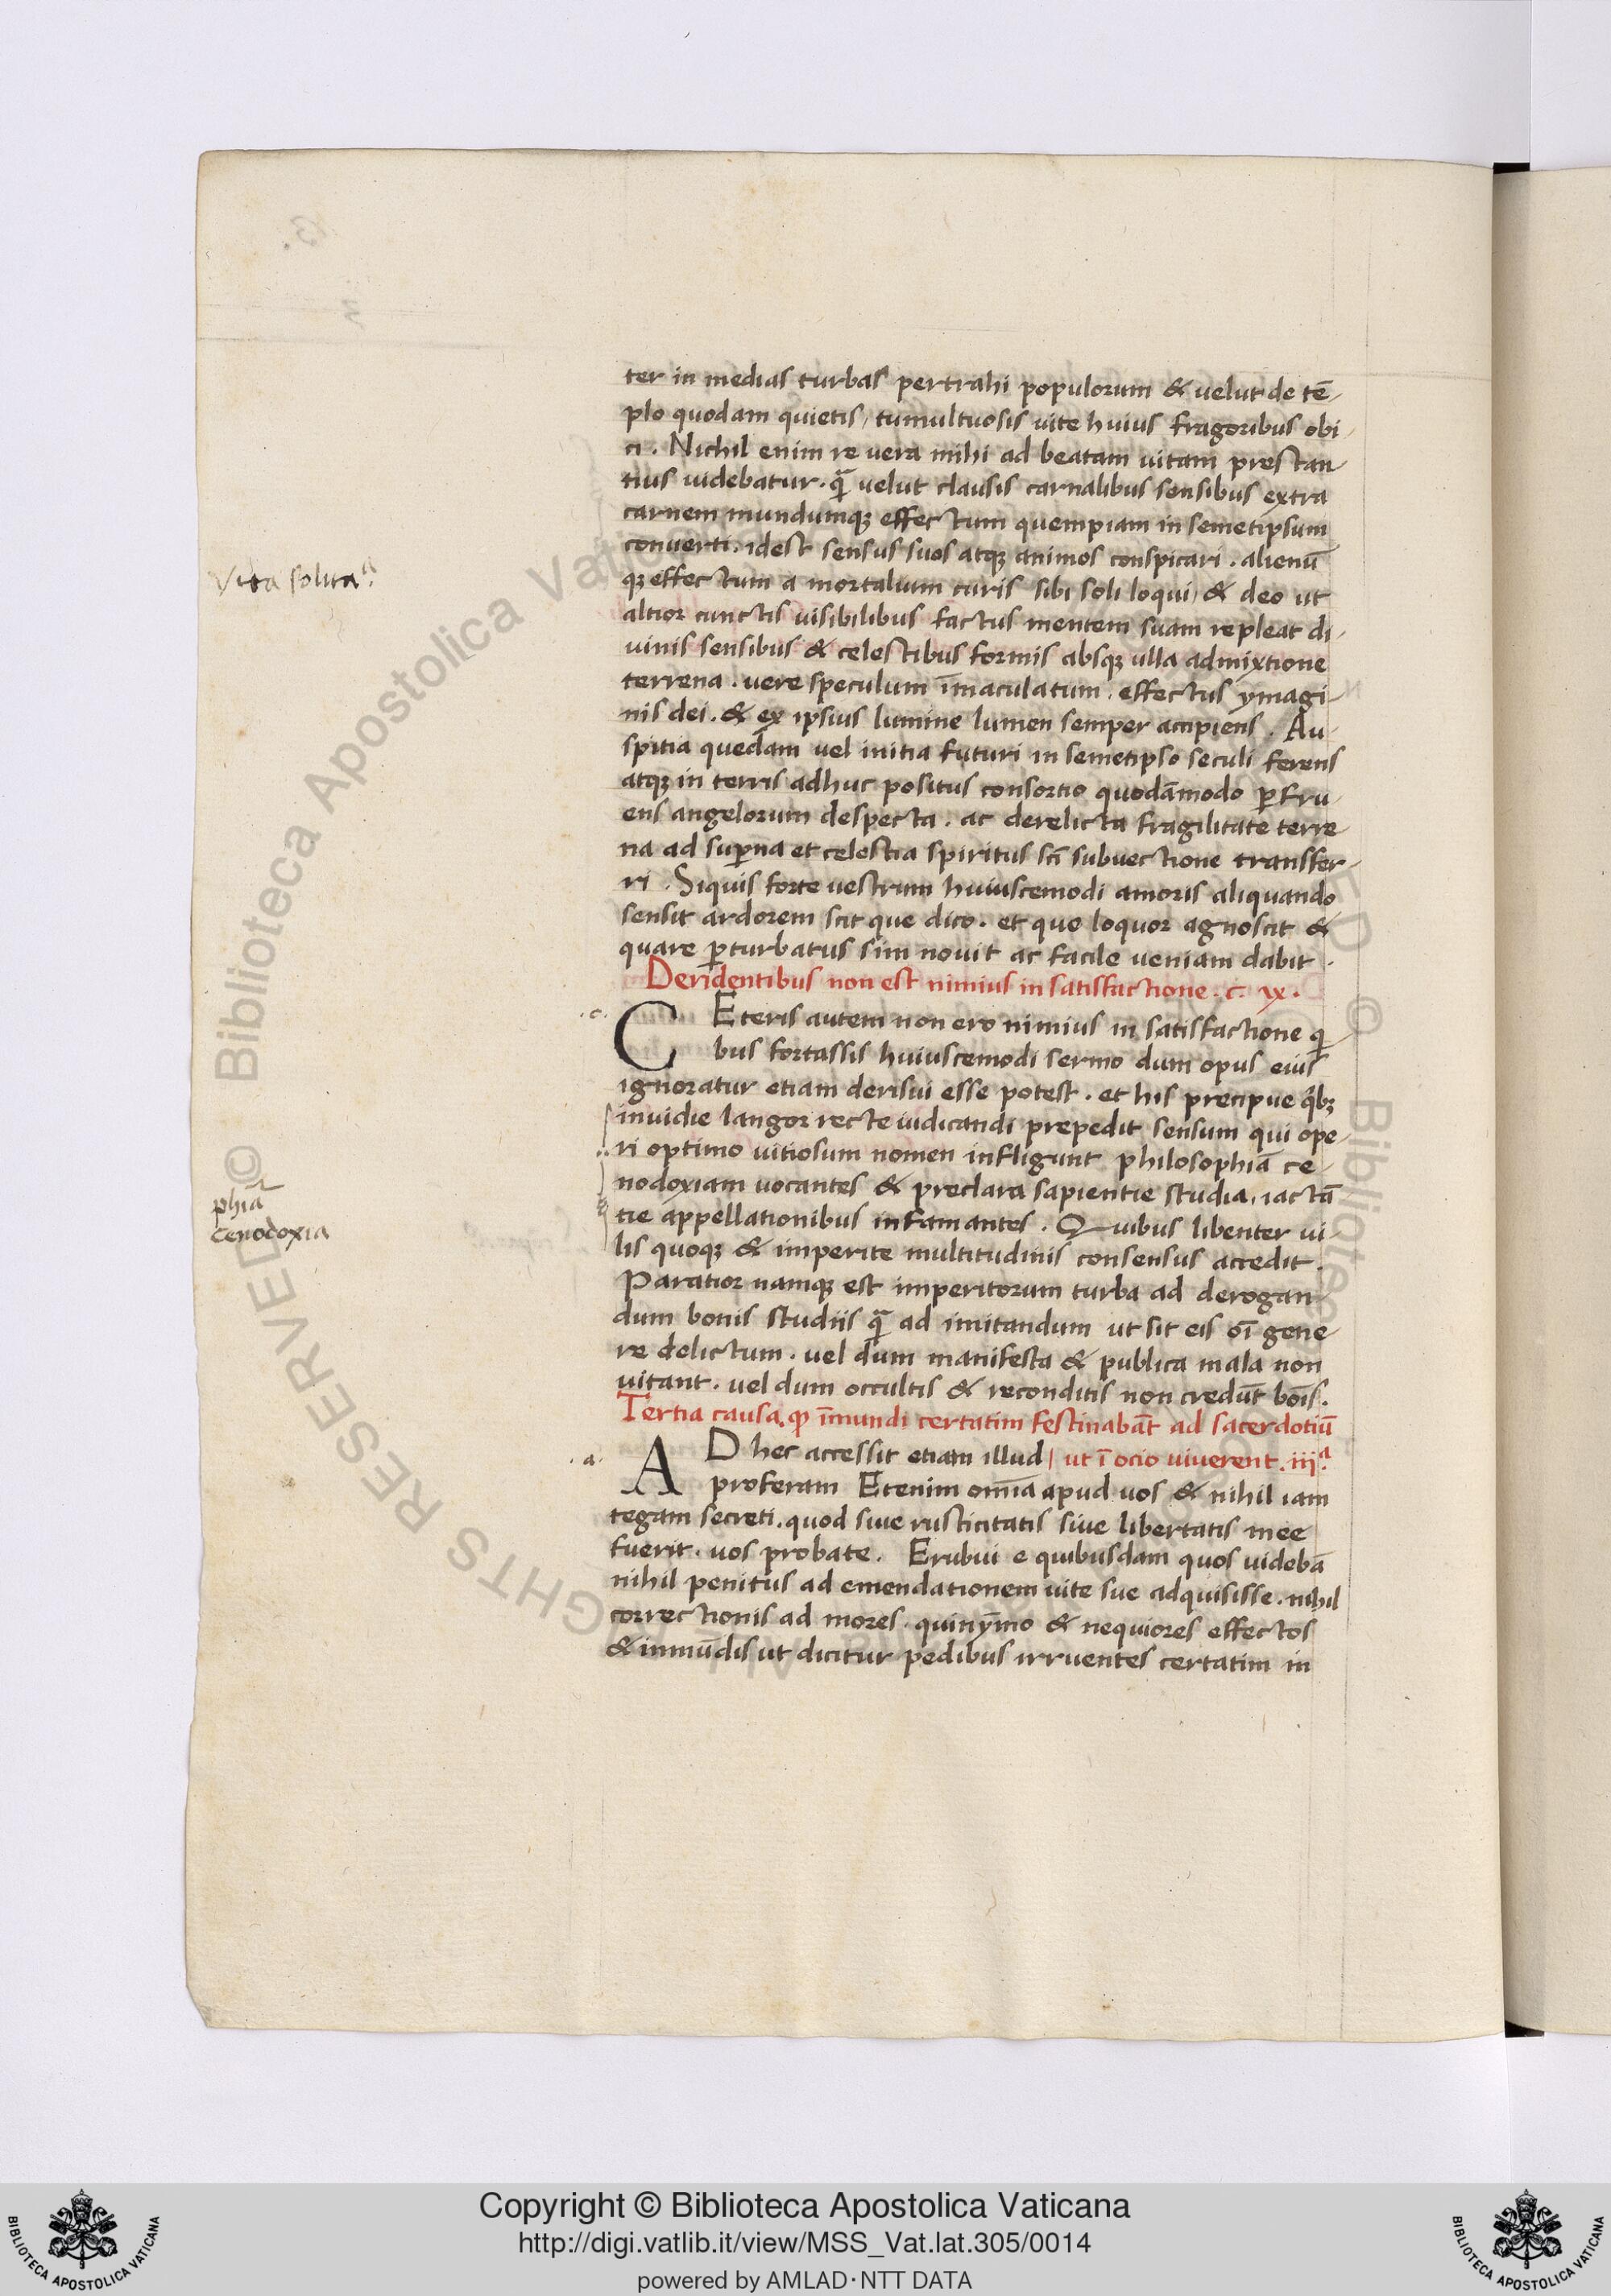 ter in medias turbas pertrahi populorum & velut de tē-
plo quodam quietis, tumultuosis vite huius fragoribus obi-
ci. Nichil enim re vera mihi ad beatam vitam prestan-
tius videbatur. qᷓ velut clausis carnalibus sensibus extra
carnem mundumqꝫ effectum quempiam in semetipsum
converti. idest sensus suos atqꝫ animos conspicari. alienū
qꝫ effectum a mortalium curis sibi soli loqui, & deo ut
altior cunctis visibilibus factus mentem suam repleat di-
vinis sensibus & celestibus formis absqꝫ ulla admixtione
terrena. vere speculum īmaculatum. effectus ymagi-
nis dei. & ex ipsius lumine lumen semper accipiens. Au-
spitia quedam vel initia futuri in semetipso seculi ferens
atqꝫ in terris adhuc positus consortio quodāmodo ꝑfru-
ens angelorum despecta. ac derelicta fragilitate terre-
na ad suꝑna et celestia spiritus scī subvectione transfer-
ri. Siquis forte vestrum huiuscemodi amoris aliquando
sensit ardorem scit que dico. et quo loquor agnoscit &
quare ꝑturbatus sim novit ac facile veniam dabit.
Deridentibus non est nimius in satisfactione. c. ix.
.c.
CEteris autem non ero nimius in satisfactione qi-
bus fortassis huiuscemodi sermo dum opus eius
ignoratur etiam derisui esse potest. et his precipue qibꝫ
invidie langor recte iudicandi prepedit sensum qui ope-
ri optimo vitiosum nomen infligunt philosophiā ce-
nodoxiam vocantes & preclara sapientie studia, iactā
tie appellationibus infamantes. Quibus libenter vi-
lis quoqꝫ & imperite multitudinis consensus accedit.
Paratior namqꝫ est imperitorum turba ad derogan-
dum bonis studiis qᷓ ad imitandum ut sit eis oī gene-
re delictum. vel dum manifesta & publica mala non
vitant. vel dum occultis & reconditis non credūt boīs.
Tertia causa. ꝙ īmundi certatim festinabāt ad sacerdotiū
.a.
AD hec accessit etiam illud | ut ī ocio viverent. iijª
proferam Etenim omīa apud vos & nihil iam
tegam secreti. quod sive rusticitatis sive libertatis mee
fuerit. vos probate. Erubui e quibusdam quos videbā
nihil penitus ad emendationem vite sue adquisisse. nihil
correctionis ad mores. quinȳmo & nequiores effectos
& inmūdis ut dicitur pedibus irruentes certatim in
Vita solitaª.
phiā
cenodoxia
© Biblioteca Apostolica Vaticana
Copyright © Biblioteca Apostolica Vaticana
http://digi.vatlib.it/view/MSS_Vat.lat.305/0014
powered by AMLAD·NTT DATA
BIBLIOTECA APOSTOLICA VATICANA
BIBLIOTECA APOSTOLICA VATICANA